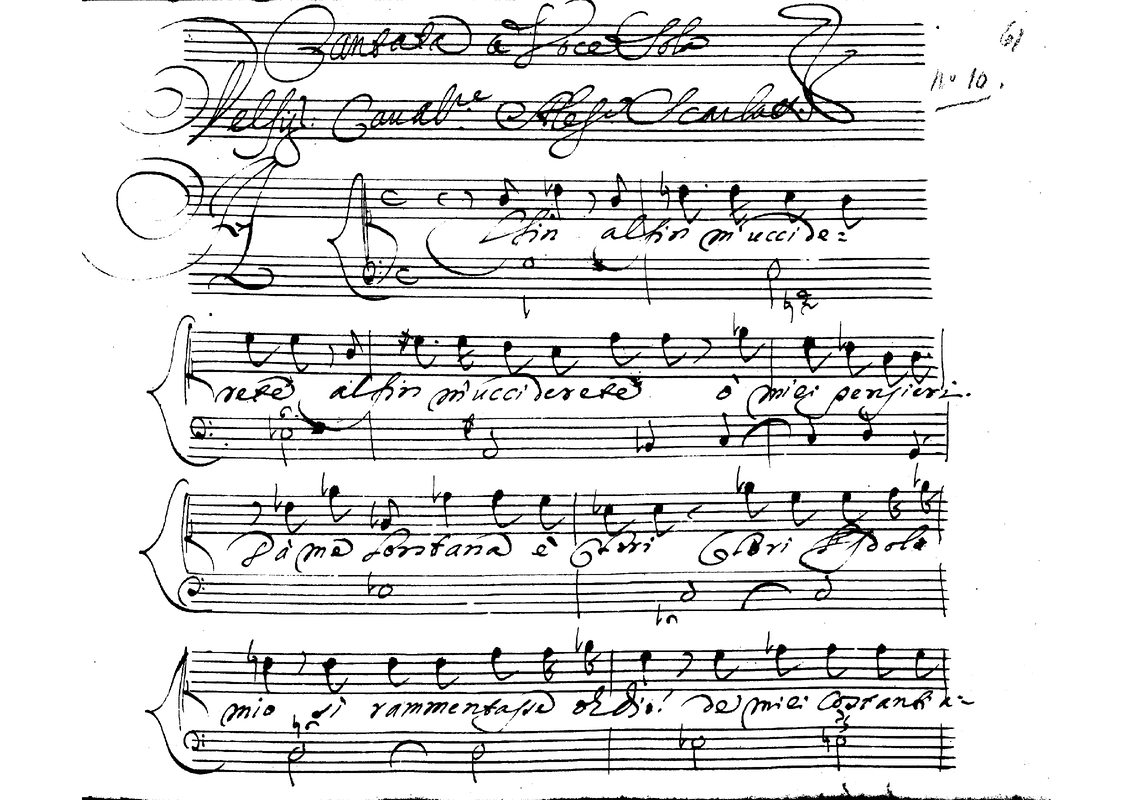 Cantata à Voce Sola
61
Nº 10.
Del Sigr: Caual:re Alesr: Scarlatti
Alfin alfin m'uccide=
rete alfin m'ucciderete ò miei pensieri.
Da me lontana è Clori Clori l'Idolo
mio si rammentasse oh Dio! de miei costanti a=